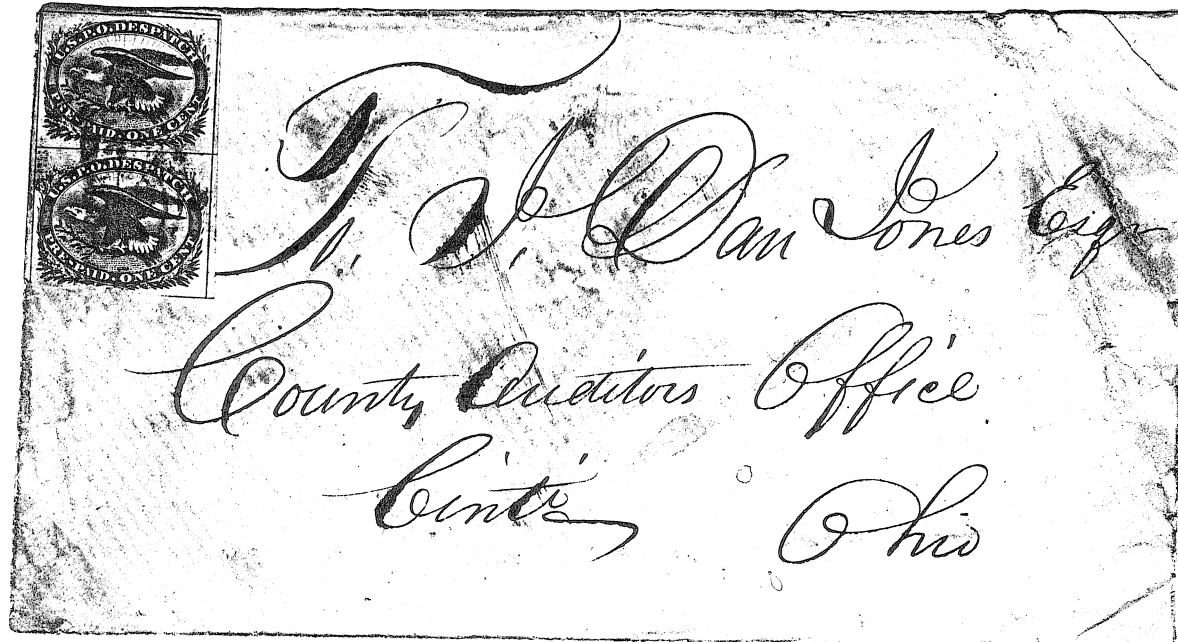 U.S.P.O.DESPATCH
PRE-PAID.ONE CENT.
U.S.P.O.DESPATCH
PRE-PAID.ONE CENT.
To, J, Dan Jones Esqr
County Auditors Office
Cinti Ohio